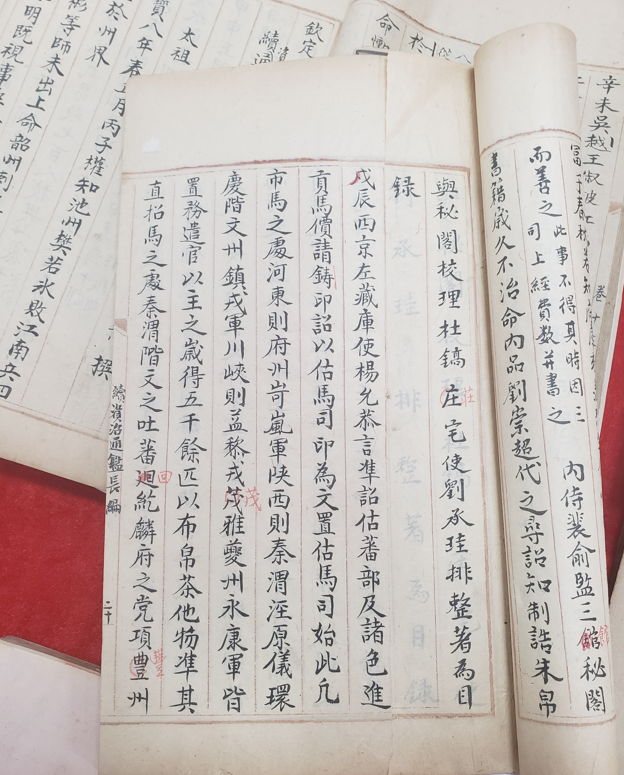 辛未吳越王俶使
而善之
此事不得其時因三
司上經費數并書之
內侍裴俞監三館秘閣
館
書籍歲久不治命內品劉崇超代之尋詔知制誥朱昂
與秘閣校理杜鎬庄宅使劉承珪排整著為目
莊
錄
戊辰西京左藏庫使楊允恭言準詔估蕃部及諸色進
貢馬價請鑄印詔以估馬司印為文置估馬司始此凡
市馬之處河東則府州岢嵐軍陝西則秦渭涇原儀環
慶階文州鎮戎軍川峽則益黎戎茂雅夔州永康軍皆
茂
置務遣官以主之歲得五千餘匹以布帛茶他物準其
直招馬之處秦渭階文之吐蕃廻紇麟府之党項豊州
回
豐
續資治通鑑長編
二十
欽定
太祖
撰
寶八年春正月丙子權知池州樊若氷敗江南兵四
於州界
彬等師未出上命韶州刺
明既視事